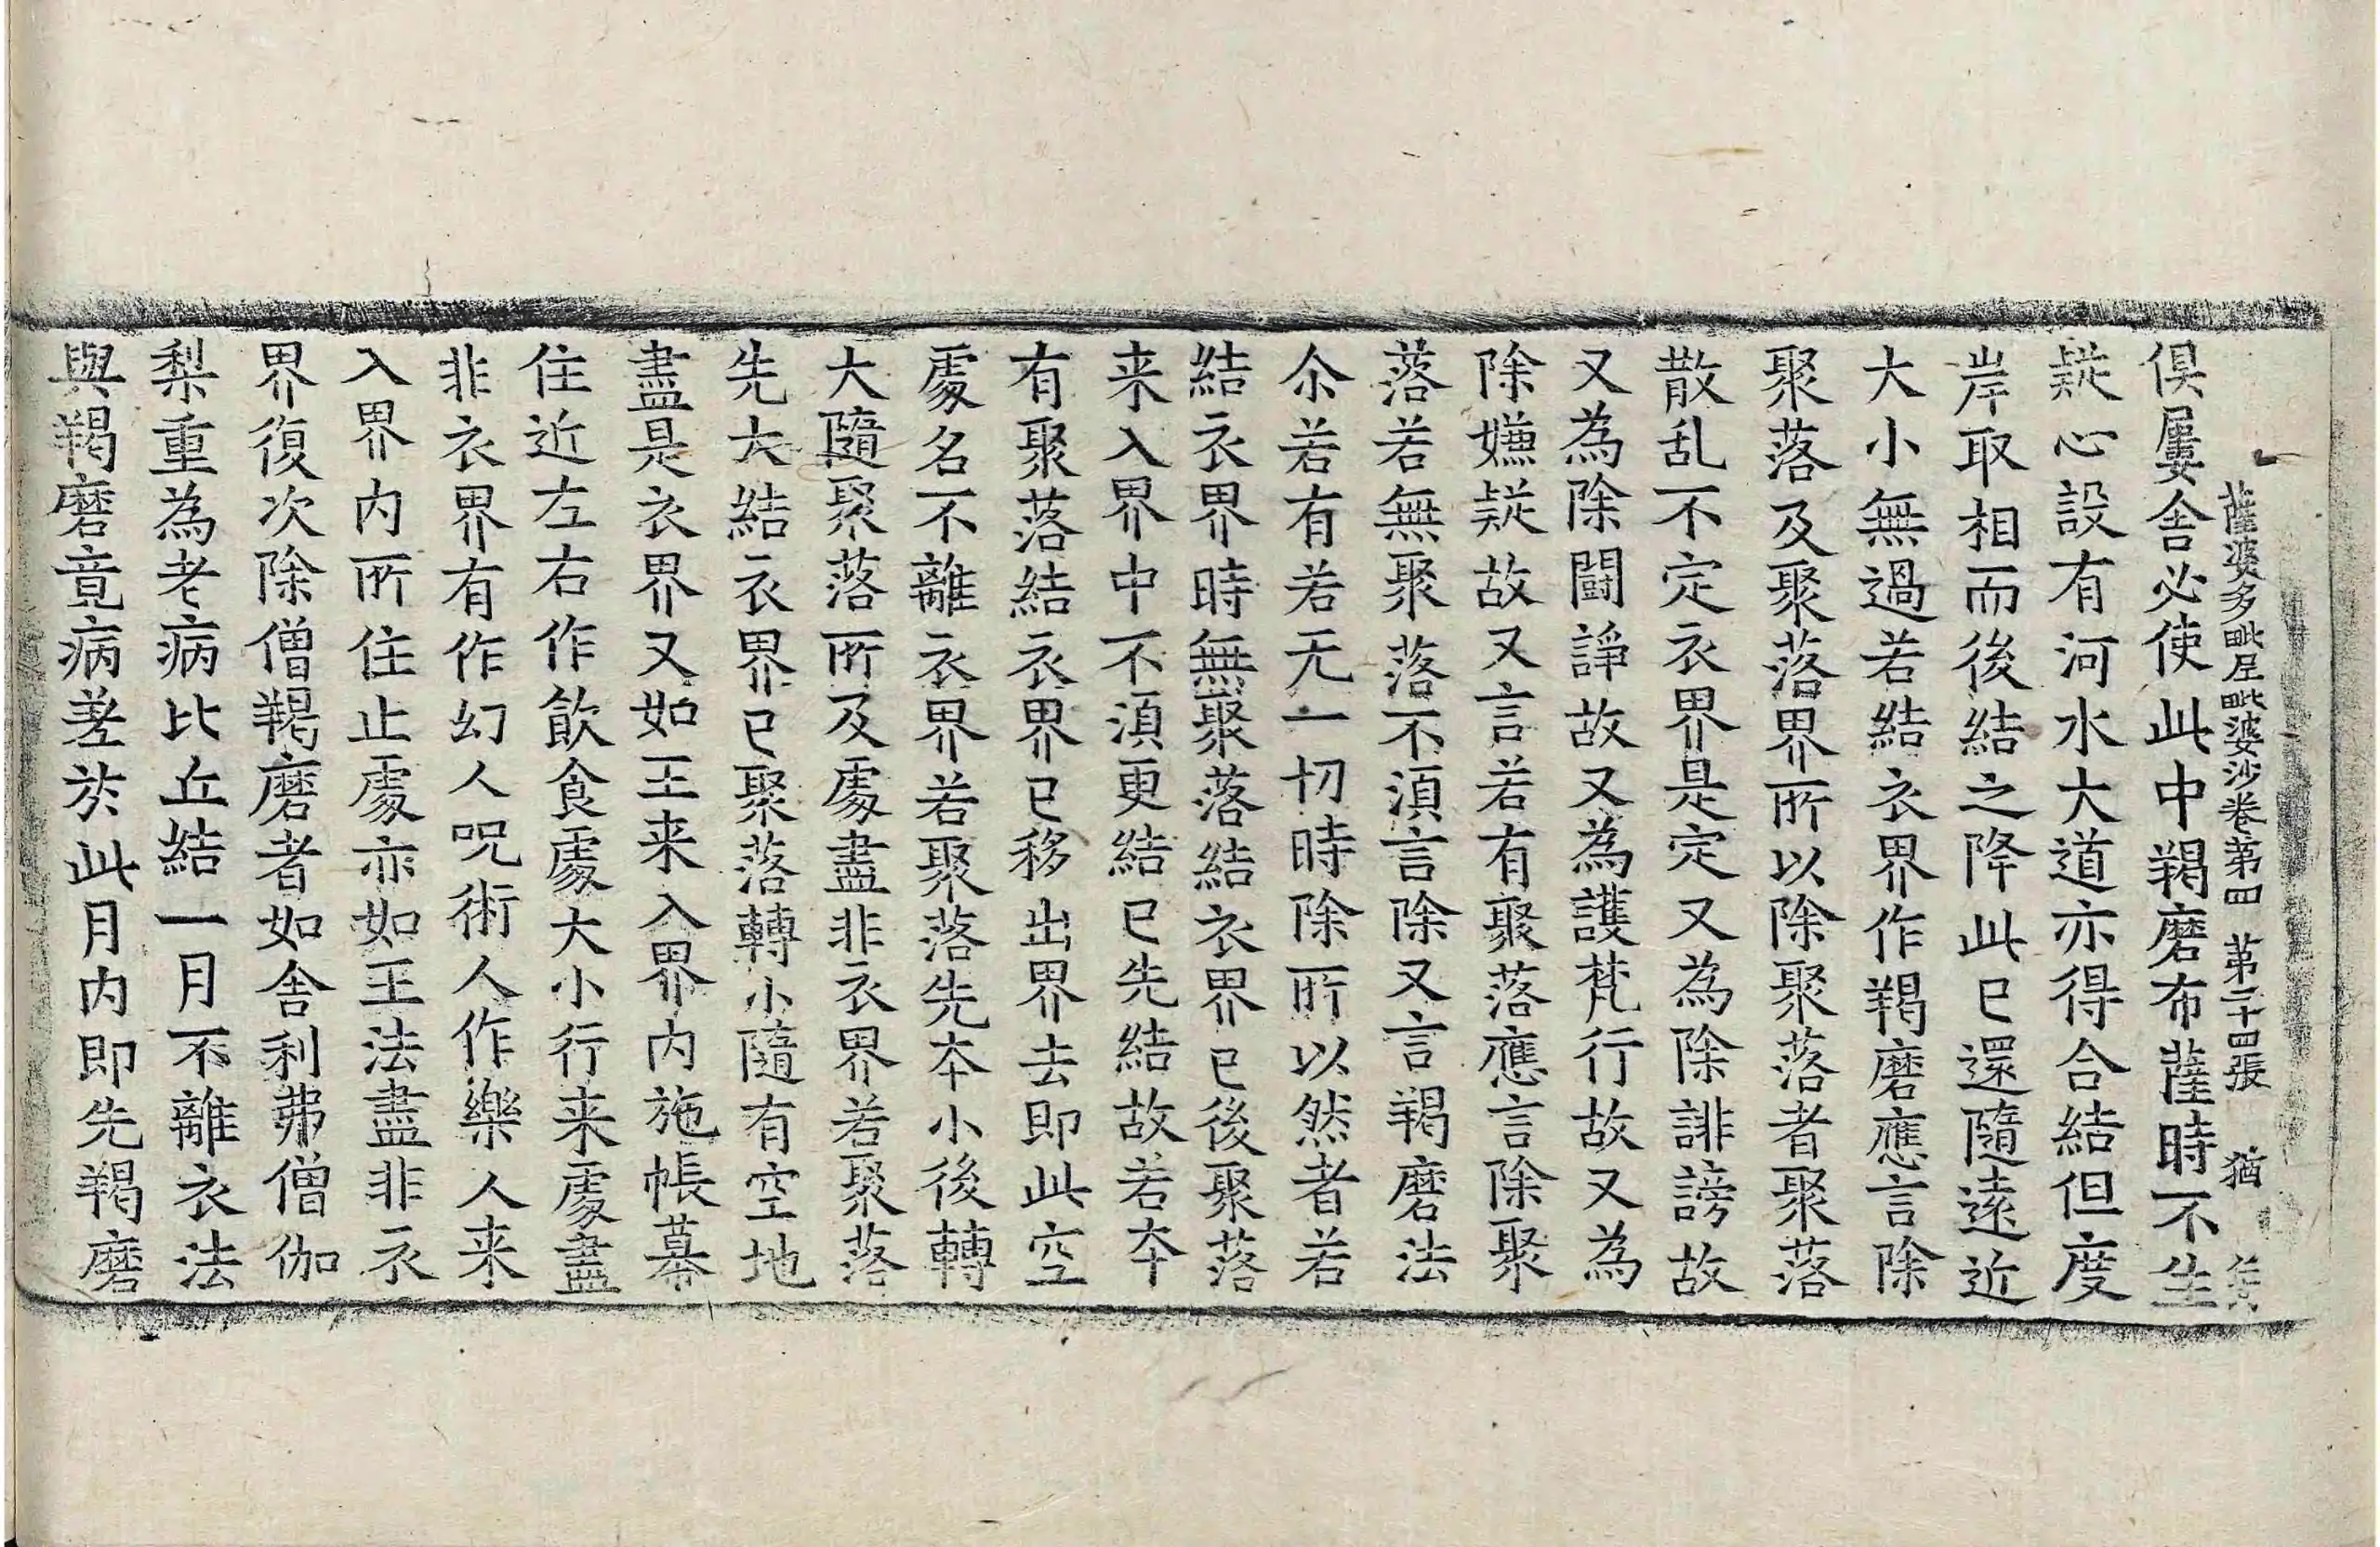 薩婆多毗尼毗婆沙卷第四　第二十四張　猶
俱屢舍必使此中羯磨布薩時不生
疑心設有河水大道亦得合結但度
岸取相而後結之降此已還隨遠近
大小無過若結衣界作羯磨應言除
聚落及聚落界所以除聚落者聚落
散乱不定衣界是定又為除誹謗故
又為除鬪諍故又為護梵行故又為
除嫌疑故又言若有聚落應言除聚
落若無聚落不湏言除又言羯磨法
尒若有若无一切時除所以然者若
結衣界時無聚落結衣界已後聚落
来入界中不湏更結已先結故若夲
有聚落結衣界已移出界去即此空
處名不離衣界若聚落先夲小後轉
大隨聚落所及處盡非衣界若聚落
先大結衣界已聚落轉小隨有空地
盡是衣界又如王来入界内施帳幕
住近左右作飲食處大小行来處盡
非衣界有作幻人呪術人作樂人来
入界内所住止處亦如王法盡非衣
界復次除僧羯磨者如舍利弗僧伽
梨重為老病比丘結一月不離衣法
與羯磨竟病差於此月内即先羯磨